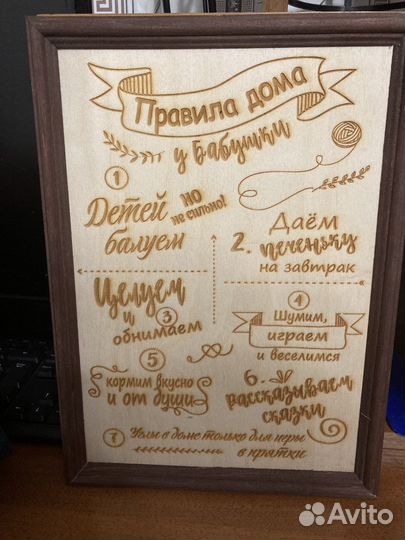 Правила дома
у Бабушки
1
Детей но
не сильно!
балуем
2. Даём
печеньку
на завтрак
Целуем
и 3
обнимаем
4
Шумим,
играем
и веселимся
5
кормим вкусно
и от души
6.
рассказываем
сказки
7 Углы в доме только для игры
в прятки
Avito